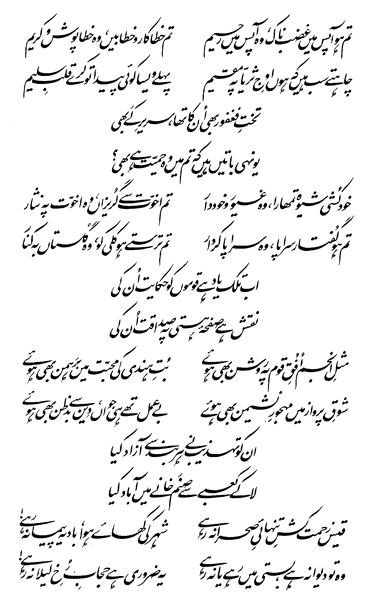 تم ہو آپس میں غضب ناک، وہ آپس میں رحیم تم خطا کار و خطا بیں، وہ خطا پوش و کریم
چاہتے سب ہیں کہ ہوں اوجِ ثریا پہ مقیم پہلے ویسا کوئی پیدا تو کرے قلبِ سلیم
تختِ فغفور بھی اُن کا تھا، سریرِ کَے بھی
یونہی باتیں ہیں کہ تم میں وہ حمیت ہے بھی؟
خودکُشی شیوہ تمھارا، وہ غیور و خوددار تم اخوّت سے گریزاں، وہ اخوّت پہ نثار
تم ہو گفتار سراپا، وہ سراپا کردار تم ترستے ہو کلی کو، وہ گلستاں بہ کنار
اب تلک یاد ہے قوموں کو حکایت اُن کی
نقش ہے صفحۂ ہستی پہ صداقت اُن کی
مثلِ انجم اُفقِ قوم پہ روشن بھی ہوئے بُتِ ہندی کی محبت میں برہمن بھی ہوئے
شوقِ پرواز میں مہجورِ نشیمن بھی ہوئے بے عمل تھے ہی جواں، دین سے بدظن بھی ہوئے
ان کو تہذیب نے ہر بند سے آزاد کیا
لا کے کعبے سے صنم خانے میں آباد کیا
قیس زحمت کشِ تنہائیِ صحرا نہ رہے شہر کی کھائے ہوا، بادیہ پیما نہ رہے
وہ تو دیوانہ ہے، بستی میں رہے یا نہ رہے یہ ضروری ہے حجابِ رُخِ لیلا نہ رہے